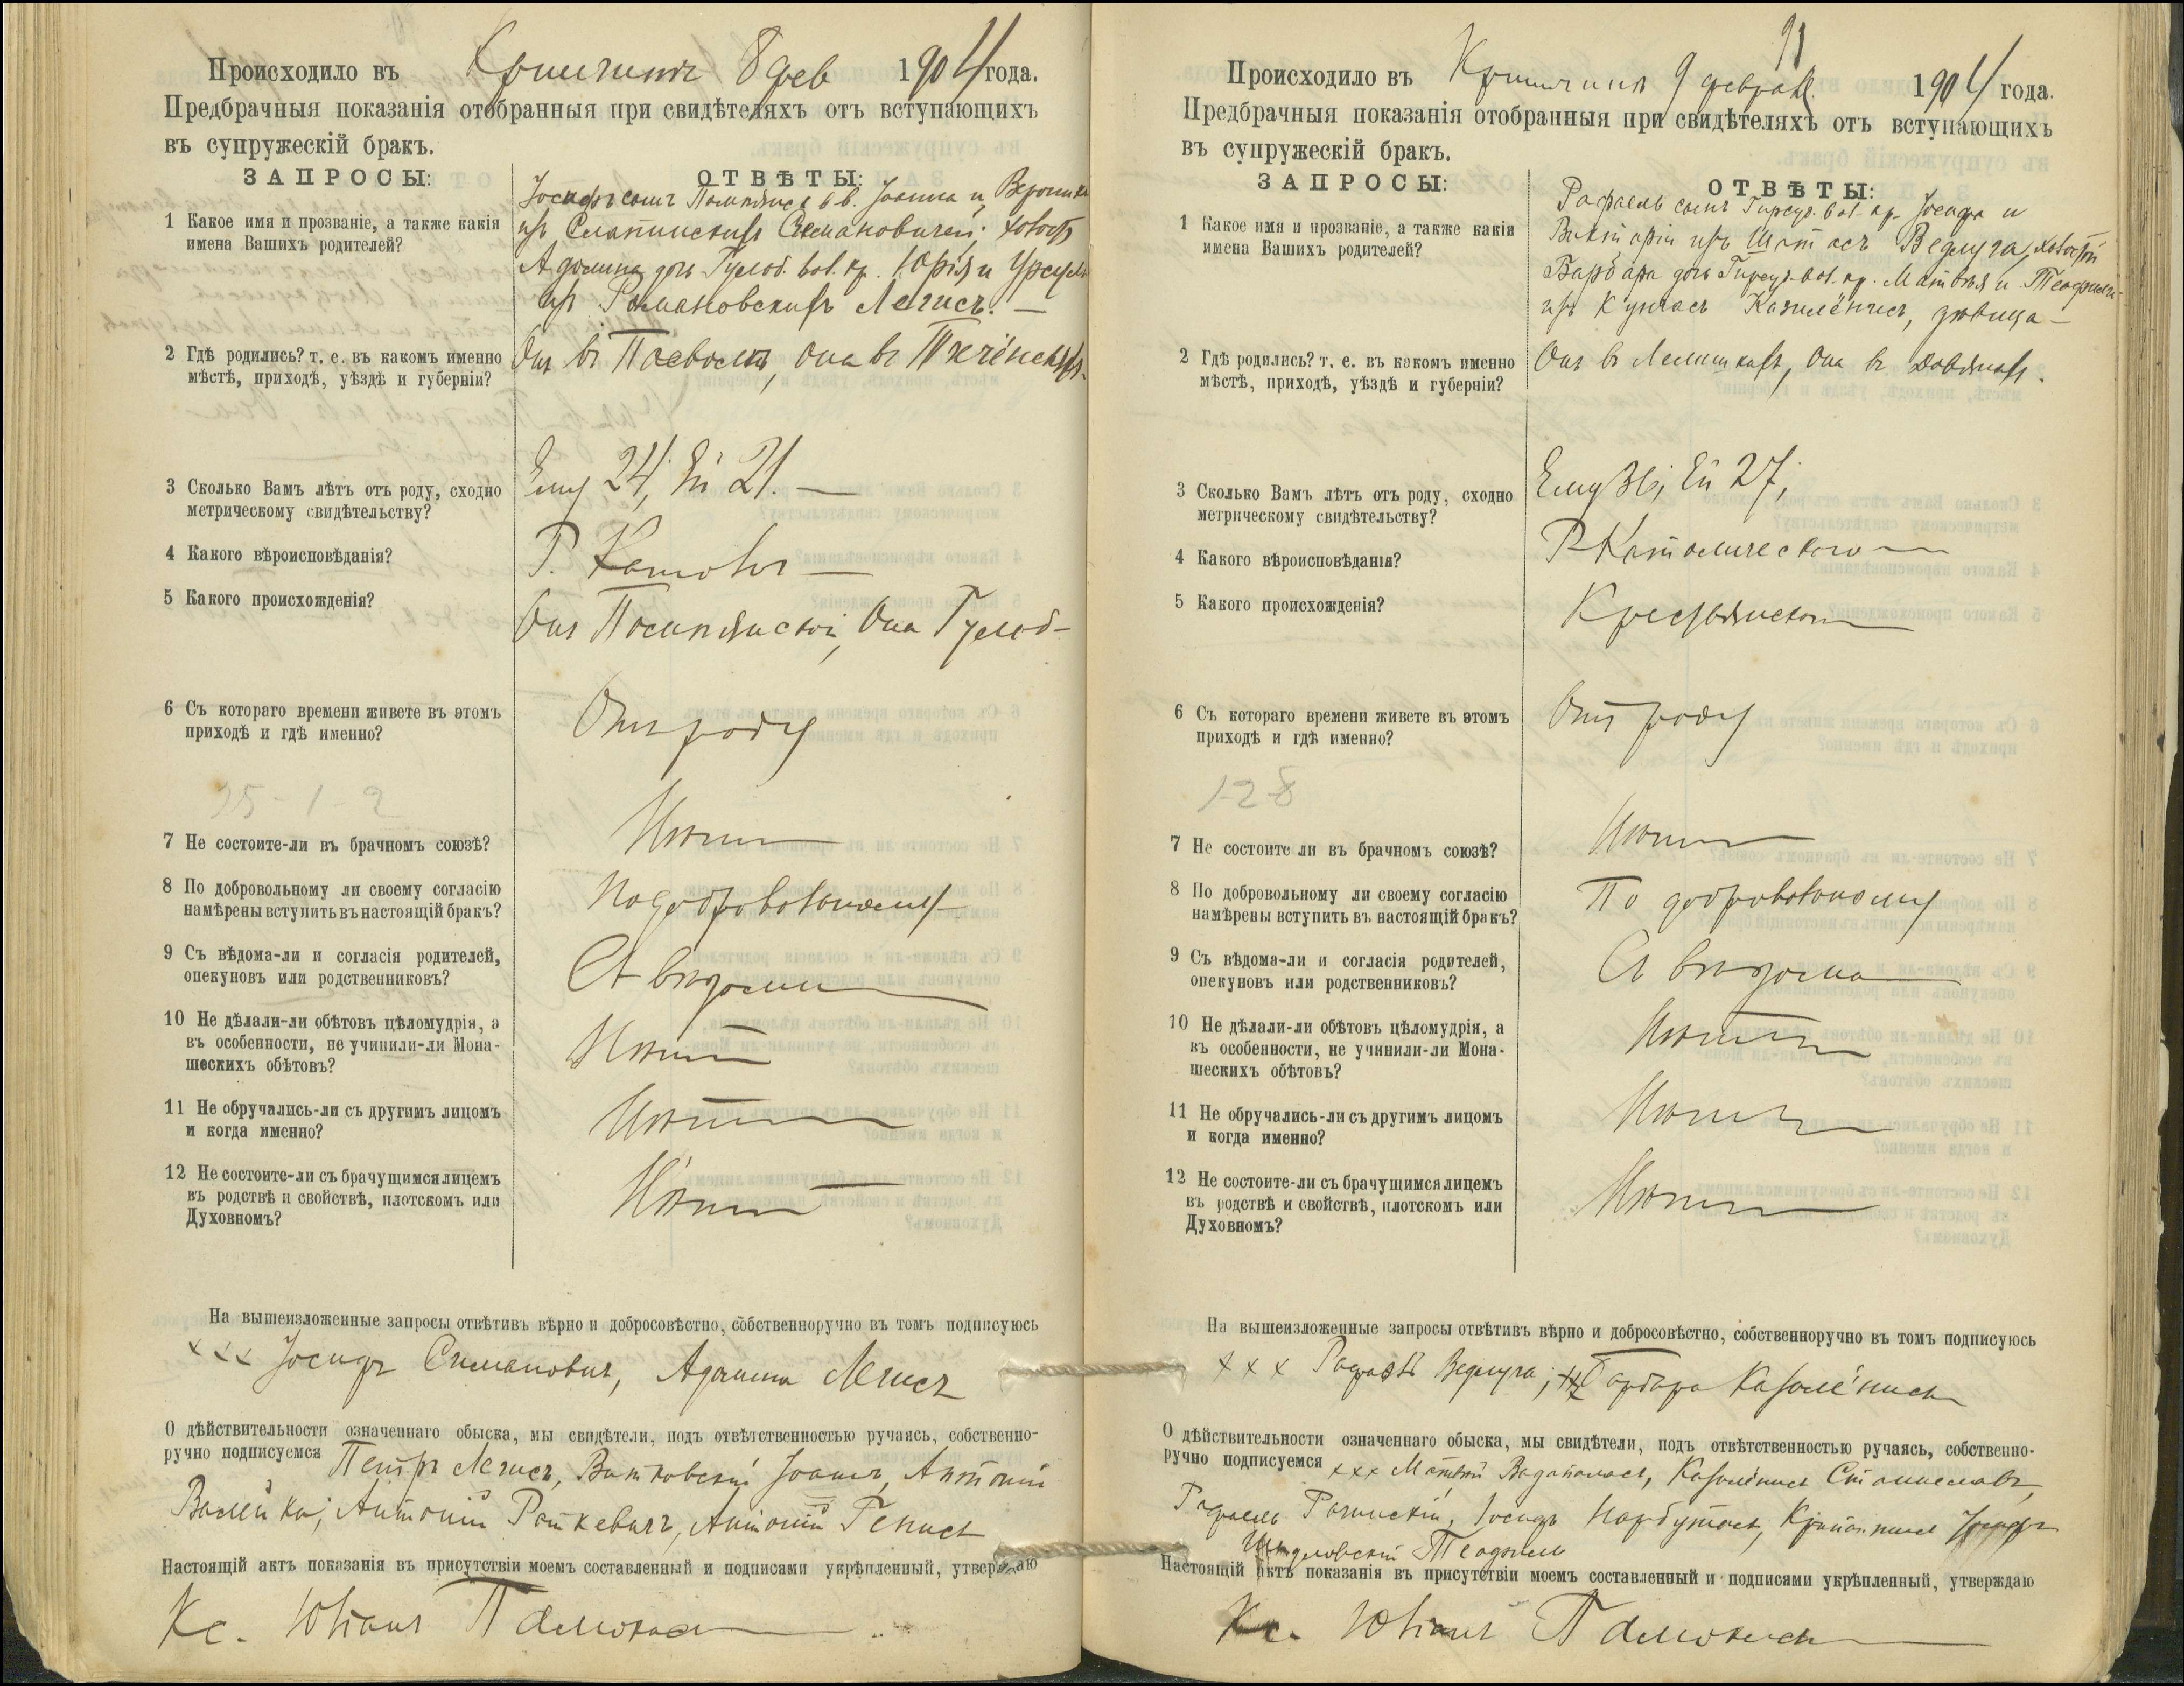 Происходило въ 8 фев 1904 года.
Предбрачныя показанія отобранныя при свидѣтеляхъ отъ вступающихъ
въ супружескій бракъ.
ЗАПРОСЫ:
ОТВѢТЫ:
1 Какое имя и прозваніе, а также какія
имена Вашихъ родителей?
Іосифъ сынъ Іоанна и
изъ
дочь Юрія и
изъ Романовскихъ —
2 Гдѣ родились? т. е. въ какомъ именно
мѣстѣ, приходѣ, уѣздѣ и губерніи?
Онъ въ она въ
3 Сколько Вамъ лѣтъ отъ роду, сходно
метрическому свидѣтельству?
Ему 24, Ей 21. —
4 Какого вѣроисповѣданія?
Р. Католич —
5 Какого происхожденія?
Онъ Она
6 Съ котораго времени живете въ этомъ
приходѣ и гдѣ именно?
Отъ роду
25-1-2
7 Не состоите-ли въ брачномъ союзѣ?
Нѣтъ
8 По добровольному ли своему согласію
намѣрены вступить въ настоящій бракъ?
По добровольному
9 Съ вѣдома-ли и согласія родителей,
опекуновъ или родственниковъ?
Съ вѣдома
10 Не дѣлали-ли обѣтовъ цѣломудрія, а
въ особенности, не учинили-ли Мона-
шескихъ обѣтовъ?
Нѣтъ
11 Не обручались-ли съ другимъ лицомъ
и когда именно?
Нѣтъ
12 Не состоите-ли съ брачущимся лицемъ
въ родствѣ и свойствѣ, плотскомъ или
Духовномъ?
Нѣтъ
На вышеизложенные запросы отвѣтивъ вѣрно и добросовѣстно, собственноручно въ томъ подписуюсь
xxx Іосифъ Симановичъ,
О дѣйствительности означеннаго обыска, мы свидѣтели, подъ отвѣтственностью ручаясь, собственно-
ручно подписуемся Петръ Витковскій Іоаннъ, Антоній
Антоній Раткевичъ, Антоній
Настоящій актъ показанія въ присутствіи моемъ составленный и подписами укрѣпленный, утверждаю
Кс.
91
Происходило въ 9 февраля 1904 года.
Предбрачныя показанія отобранныя при свидѣтеляхъ отъ вступающихъ
въ супружескій бракъ.
ЗАПРОСЫ:
ОТВѢТЫ:
1 Какое имя и прозваніе, а также какія
имена Вашихъ родителей?
Рафаель сынъ Іосифа и
Викторіи изъ Ведлуга,
Барбара дочь
изъ дѣвица —
2 Гдѣ родились? т. е. въ какомъ именно
мѣстѣ, приходѣ, уѣздѣ и губерніи?
Онъ въ Она въ
3 Сколько Вамъ лѣтъ отъ роду, сходно
метрическому свидѣтельству?
Ему Ей 27,
4 Какого вѣроисповѣданія?
Р Католическаго
5 Какого происхожденія?
Крестьянскаго
6 Съ котораго времени живете въ этомъ
приходѣ и гдѣ именно?
Отъ роду
1-2-8
7 Не состоите ли въ брачномъ союзѣ?
Нѣтъ
8 По добровольному ли своему согласію
намѣрены вступить въ настоящій бракъ?
По добровольному
9 Съ вѣдома-ли и согласія родителей,
опекуновъ или родственниковъ?
Съ вѣдома
10 Не дѣлали-ли обѣтовъ цѣломудрія, а
въ особенности, не учинили-ли Мона-
шескихъ обѣтовъ?
Нѣтъ
11 Не обручались-ли съ другимъ лицомъ
и когда именно?
Нѣтъ
12 Не состоите-ли съ брачущимся лицемъ
въ родствѣ и свойствѣ, плотскомъ или
Духовномъ?
Нѣтъ
На вышеизложенные запросы отвѣтивъ вѣрно и добросовѣстно, собственноручно въ томъ подписуюсь
xxx Ведлуга; Барбара
О дѣйствительности означеннаго обыска, мы свидѣтели, подъ отвѣтственностью ручаясь, собственно-
ручно подписуемся xxx Станиславъ,
Рафаель Іосифъ Нарбутасъ,
Настоящій актъ показанія въ присутствіи моемъ составленный и подписями укрѣпленный, утверждаю
Кс.